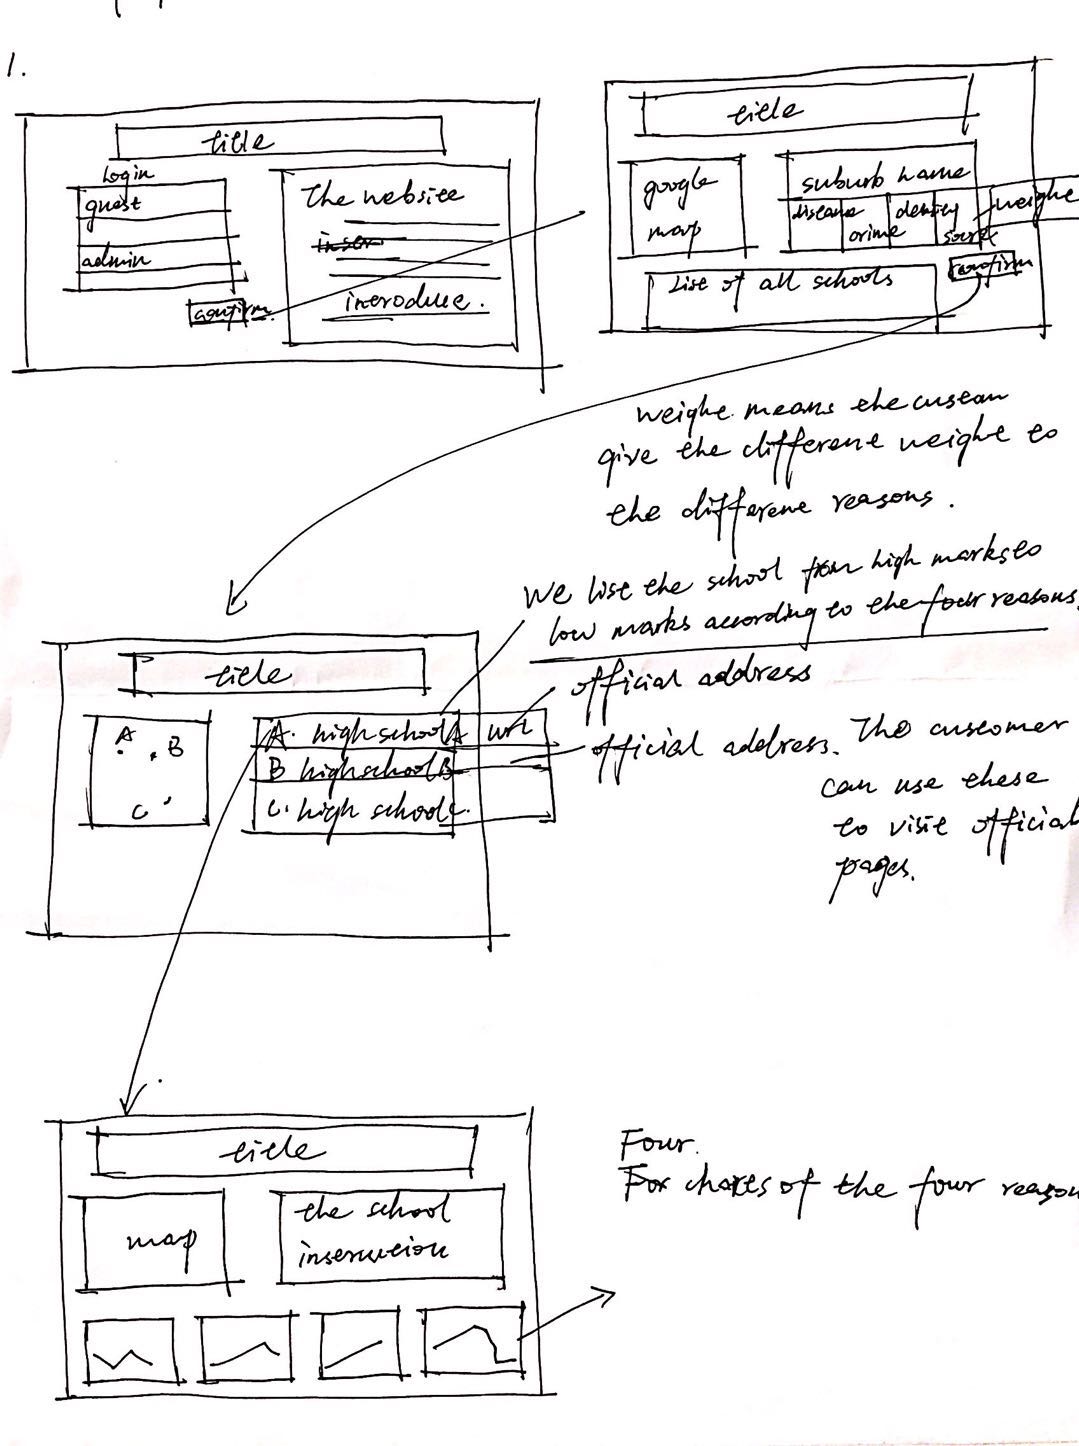 1.
title
Login
guest
admin
confirm
The website
introduce.
title
google
map
suburb name
disease
crime
density
score
weight
confirm
List of all schools
weight means the custom
give the different weight to
the different reasons.
We list the school from high marks to
low marks according to the four reasons.
title
A
B
C
A. high school A
url
B high school B
C. high school C.
official address
official address. The customer
can use these
to visit official
pages.
title
map
the school
instruction
Four.
For charts of the four reason